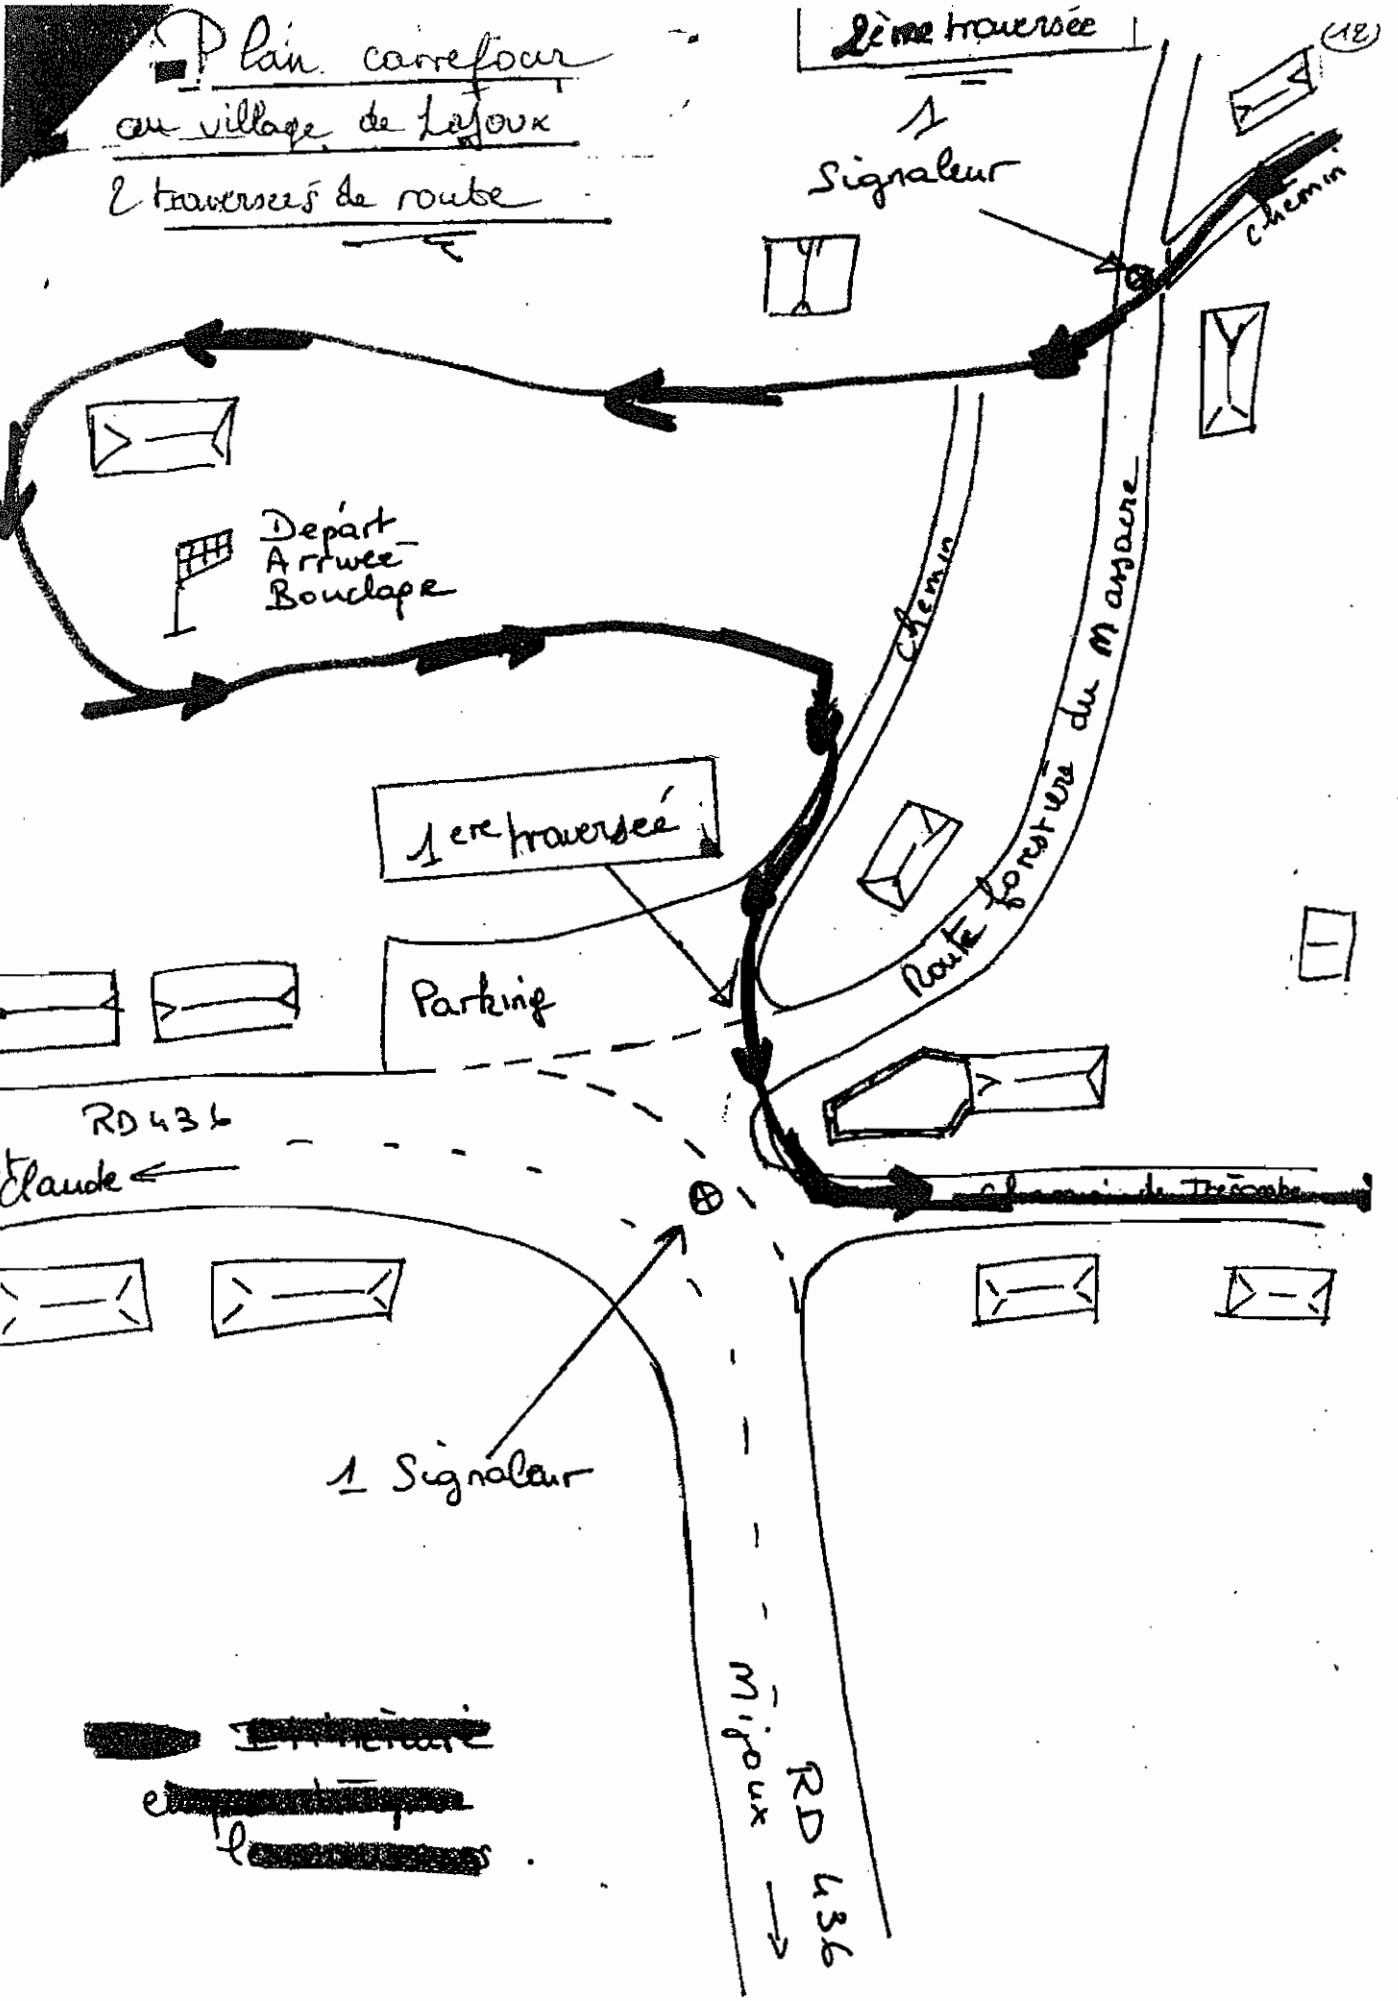 Plan carrefour
au village de Lajoux
2 traversées de route
2ème traversée
(12)
1
Signaleur
chemin
Départ
Arrivée
Bouclage
chemin
Route forestière du Massacre
1ere traversée
Parking
RD 436
Claude
1 Signaleur
Mijoux
RD 436
Itinéraire